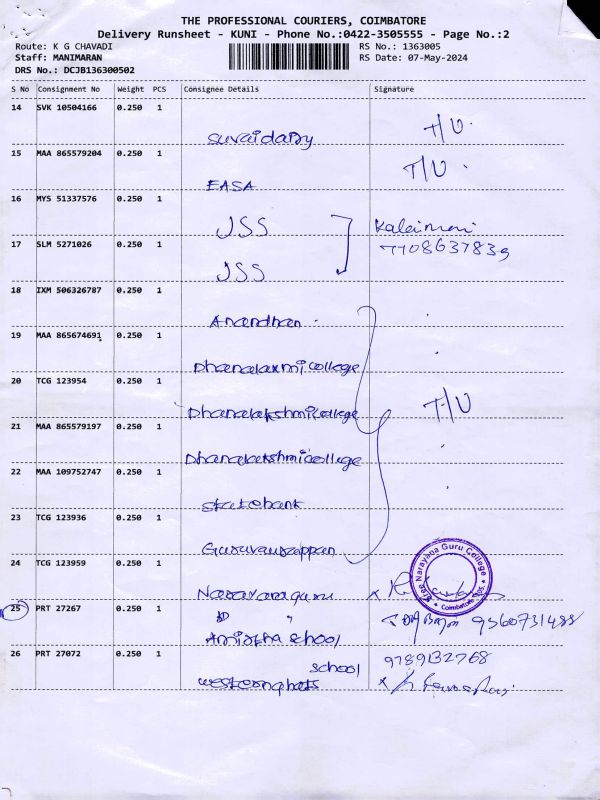 THE PROFESSIONAL COURIERS, COIMBATORE
Delivery Runsheet - KUNI - Phone No.:0422-3505555 - Page No.:2
Route: K G CHAVADI
Staff: MANIMARAN
DRS No.: DCJB136300502
RS No.: 1363005
RS Date: 07-May-2024
S No Consignment No Weight PCS Consignee Details Signature
14 SVK 10504166 0.250 1
suvaidairy T/U.
15 MAA 865579204 0.250 1
EASA T/U.
16 MYS 51337576 0.250 1
JSS Kaleimani
17 SLM 5271026 0.250 1
7708637839
JSS
18 IXM 506326787 0.250 1
Anandhan.
19 MAA 865674691 0.250 1
Dhanalaxmicollege
20 TCG 123954 0.250 1
Dhanalakshmicollege T/U
21 MAA 865579197 0.250 1
Dhanalakshmicollege
22 MAA 109752747 0.250 1
statebank
23 TCG 123936 0.250 1
Guruvayurappan
24 TCG 123959 0.250 1
Narayanaguru
Sree Narayana Guru College
Coimbatore
25 PRT 27267 0.250 1
9360731488
school
26 PRT 27072 0.250 1
9789132768
school
westernghats